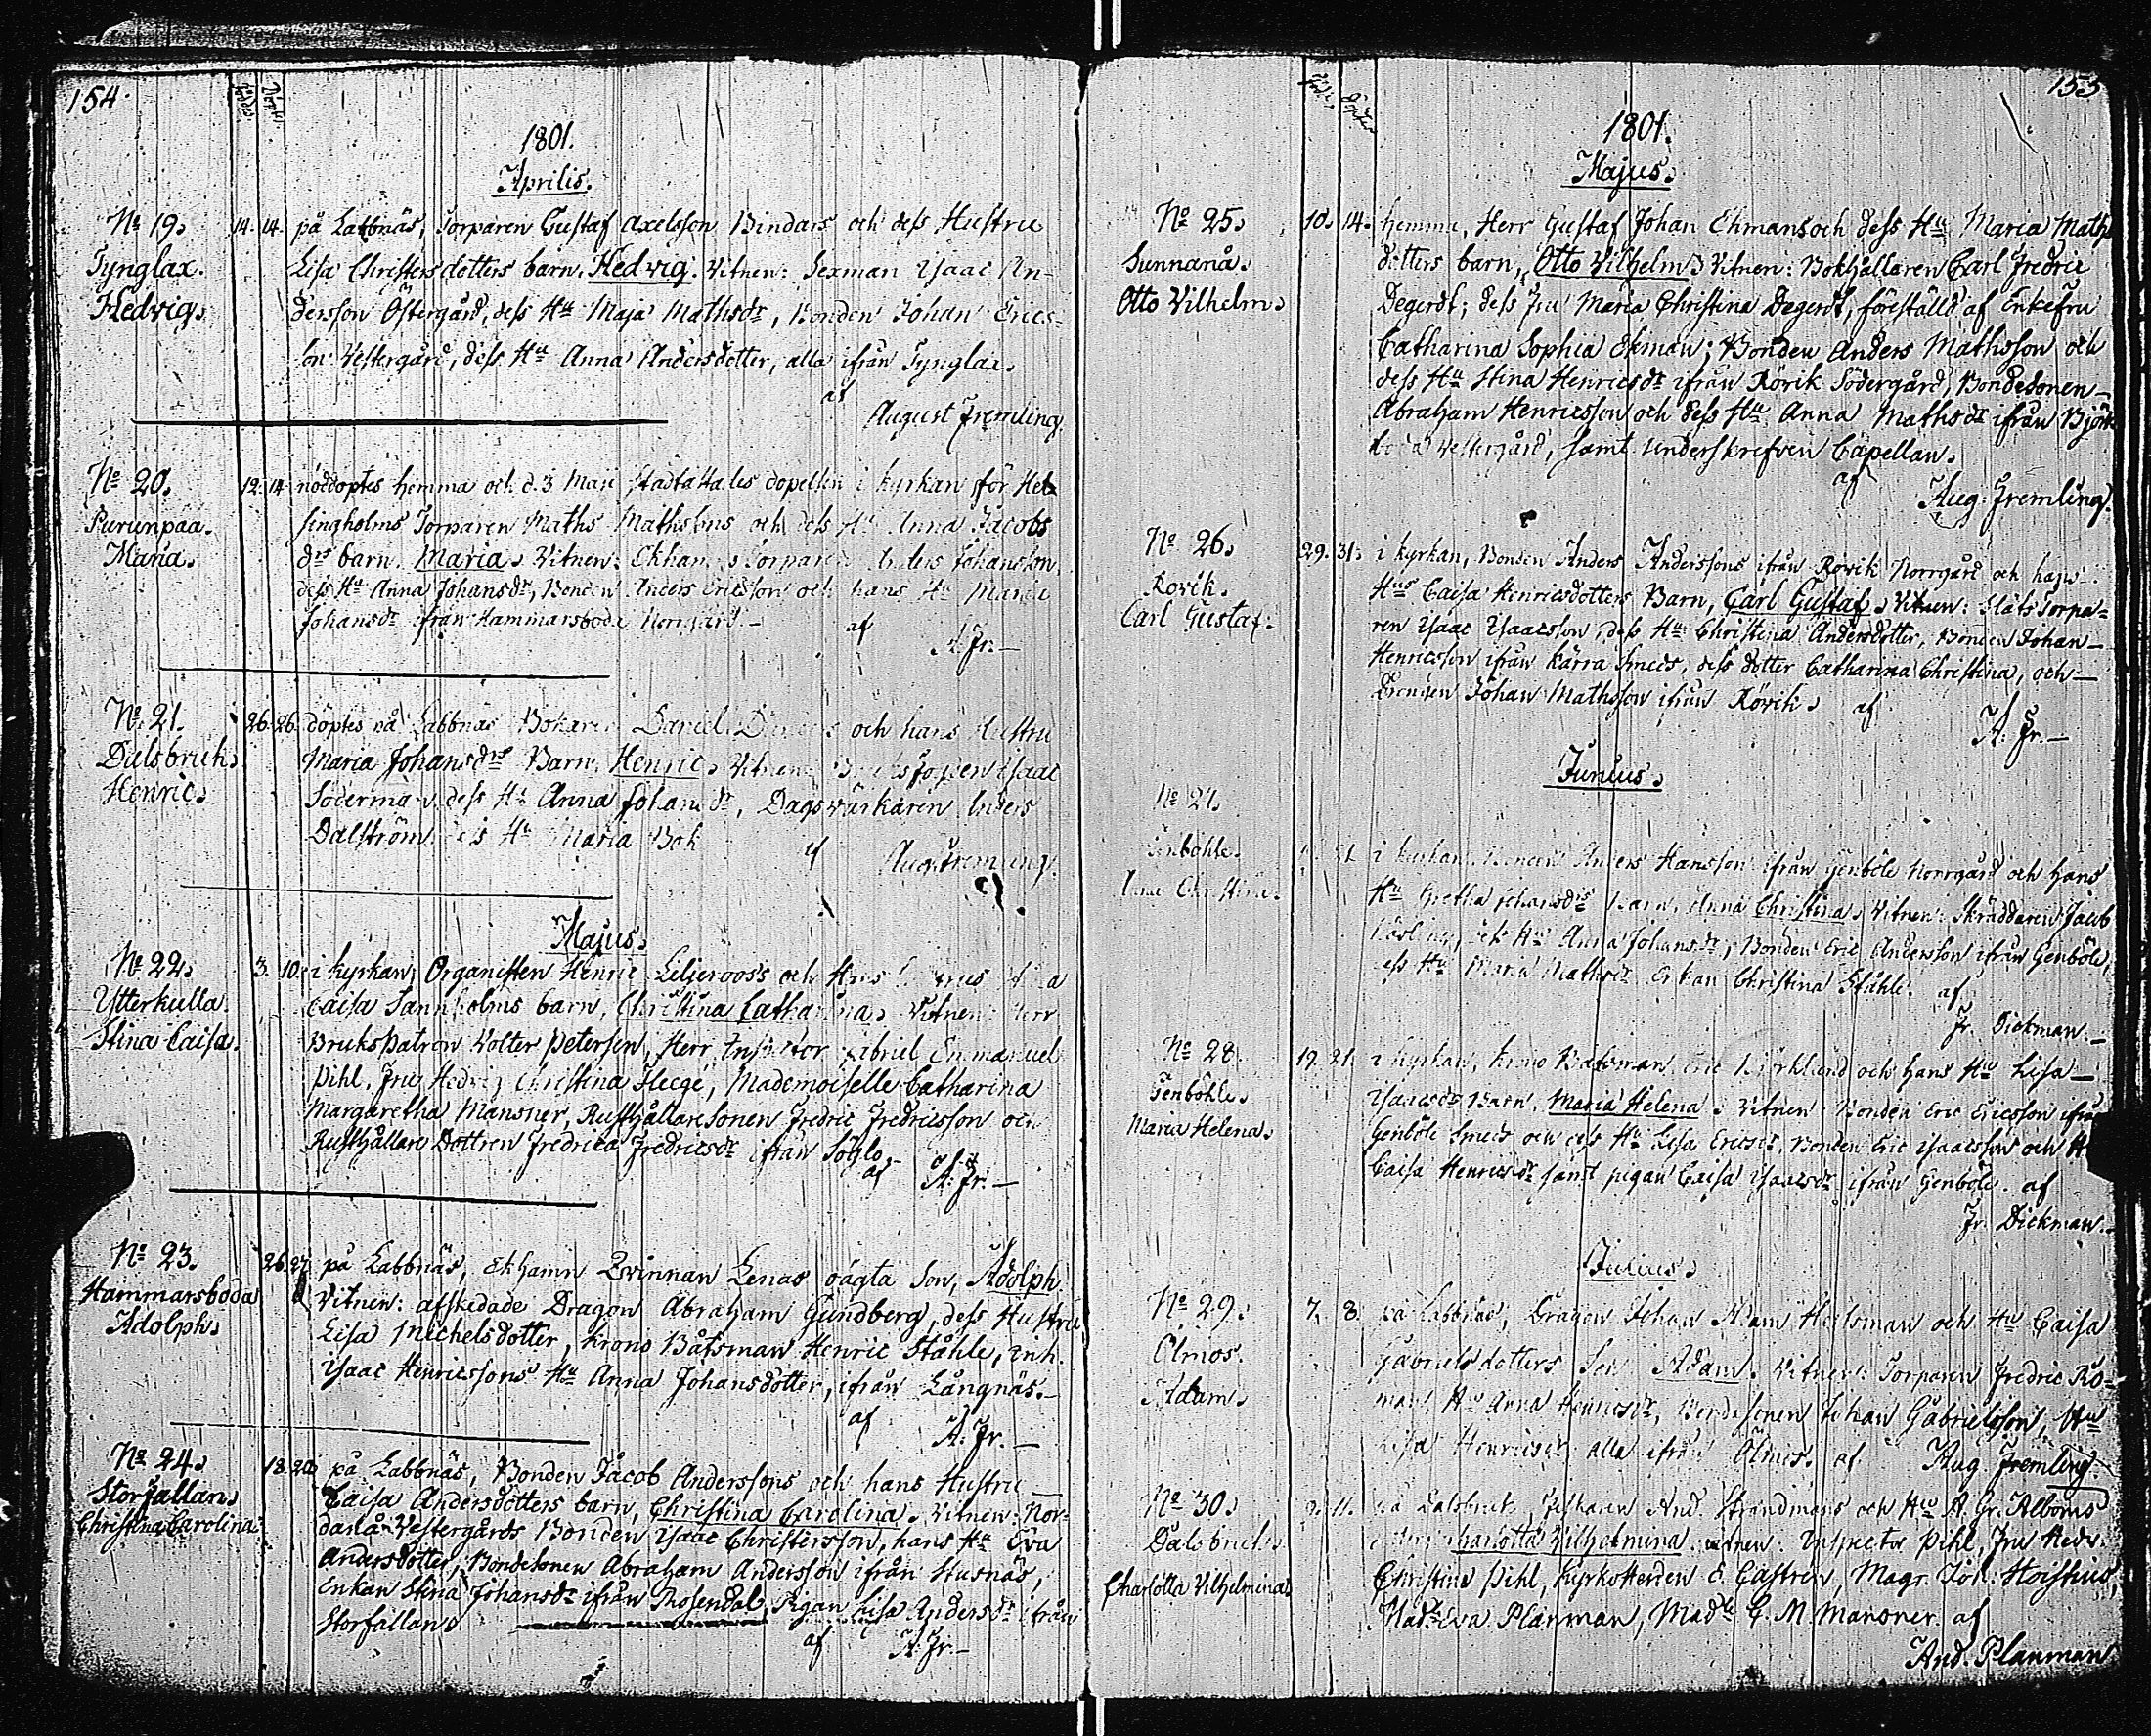 154.
Födde. Döpte.
1801.
Aprilis.
No 19. 14. 14. på Labbnäs, Torparen Gustaf Axelsson Bindars och dess Hustru
Tynglax. Lisa Christersdotters barn, Hedvig. Vitnen: Sexman Isaac An-
Hedvig. dersson Östergård, dess Hu Maja Mathsdr, Bonden Johan Erics-
son Vestergård, dess Hu Anna Andersdotter, alla ifrån Tynglax.
af
August Fremling.
No 20. 12. 14 nöddöptes hemma och d. 3 Maji i kyrkan för Hel-
Purunpää. singholms Torparen Maths Mathssons och dess Hu Anna Jacobs
Maria. drs barn. Maria. Vitnen: Ekhamns Torparen Anders Johansson
dess Hu Anna Johansdr, Bonden Anders Ericsson och hans Hu Maria
Johansdr ifrån Hammarsboda Norrgård. — af
A. Fr. —
No 21. 26. 26. döptes på Labbnäs Daniel och hans Hustru
Dalsbruk. Maria Johansdrs Barn, Henric. Vitnen: Isaac
Henric. Söderman, dess Hu Anna Johansdr, Dagsverkaren Anders
Dalström dess Hu Maria Bok af
Aug. Fremling.
Majus.
No 22. 3. 10. i kyrkan, Organisten Henric Liljeroos's och Hans
Ytterkulla. Caisa Sannholms barn, Christina Catharina. Vitnen: Herr
Stina Caisa. Bruks Patron Wolter Petersen, Herr Inspector Gabriel Emanuel
Pihl, Fru Hedvig Christina Flege, Mademoiselle Catharina
Margaretha Mansner, Rusthållaresonen Fredric Fredricsson och
Rusthållare Dottren Fredrica Fredricsdr ifrån Söglo. —
af A. Fr. —
No 23. 26. 27 på Labbnäs, Ekhamn Qvinnan Lenas oägta Son, Adolph.
Hammarsboda Vitnen: afskedade Dragon Abraham Gundberg, dess Hustru
Adolph. Lisa Michelsdotter, Krono Båtsman Henric Ståhle, inh.
Isaac Henricssons Hu Anna Johansdotter, ifrån Långnäs. —
af
A. Fr. —
No 24. 18. 20. på Labbnäs, Bonden Jacob Anderssons och hans Hustru —
Storfallan. Caisa Andersdotters barn, Christina Carolina. Vitnen: Nor-
Christina Carolina. danå Vestergårds Bonden Isaac Christersson, hans Hu Eva
Andersdotter, Bondesonen Abraham Andersson ifrån Stusnäs,
Enkan Stina Johansdr ifrån Rosendal, Pigan Lisa Andersdr ifrån
Storfallan.
af A. Fr. —
155
Födde. Döpte.
1801.
Majus.
No 25. 10. 14. hemma, Herr Gustaf Johan Ehmans och dess Hu Maria Maths
Sunnanå. dotters barn, Otto Vilhelm. Vitnen: Bokhållaren Carl Fredric
Otto Vilhelm. Degerdt; dess Fru Maria Christina Degerdt, föreställd af Enkefru
Catharina Sophia Ekman; Bonden Anders Mathsson och
dess Hu Stina Henricsdr ifrån Rövik Södergård, Bondesonen —
Abraham Henricsson och dess Hu Anna Mathsdr ifrån Björk
boda Vestergård, samt underskrefven Capellan.
af
Aug. Fremling.
No 26. 29. 31. i kyrkan, Bonden Anders Anderssons ifrån Rövik Norrgård och hans
Rövik. Hus Caisa Henricsdotters Barn, Carl Gustaf. Vitnen: Släts Torpa-
Carl Gustaf. ren Isaac Isaacsson, dess Hu Christina Andersdotter, Bonden Johan —
Henricsson ifrån Kärra Smeds, dess dotter Catharina Christina, och —
Drengen Johan Mathsson ifrån Rövik. af
A. Fr. —
Junius.
No 27. i kyrkan, Bonden Anders Hansson ifrån Genböle Norrgård och hans
Genböhle. Hu Gretha Johansdrs barn, Anna Christina. Vitnen: Skräddaren Jacob
Anna Christina. dess Hu Anna Johansdr, Bonden Eric Andersson ifrån Genböle,
dess Hu Maria Mathsdr Enkan Christina Ståhle. af
Fr. Dickman. —
No 28. 19. 21. i kyrkan, Krono Båtsman Eric Björklund och hans Hu Lisa —
Genböhle. Isaacsdrs Barn, Maria Helena. Vitnen: Bonden Eric Ericsson ifrån
Maria Helena. Genböle Smeds och dess Hu Lisa Ericsdr, Bonden Eric Isaacsson och Hu
Caisa Henricsdr samt pigan Caisa Isaacsdr ifrån Genböle. af
Fr. Dickman. —
Julius.
No 29. 7. 8. på Labbnäs, Dragon Johan Adam Heilsman och Hu Caisa
Ölmos. Gabrielsdotters Son Adam. Vitnen: Torparen Fredric Ro-
Adam. man, Hu Anna Henricsdr, Bondesonen Johan Gabrielsson, Hu
Lisa Henricsdr alla ifrån Ölmos. af Aug. Fremling.
No 30. 9. 11. på Dalsbruk, And. Strandmans och Hu A. Gr. Alboms
Dalsbruk. Charlotta Vilhelmina. vitnen: Inspector Pihl, Fru Hedv.
Charlotta Vilhelmina. Christina Pihl, Kyrkoherden E. Castren, Magr. Joh. Hoisthius,
Madlle Eva Planman, Madlle C. M. Mansner. af
And. Planman